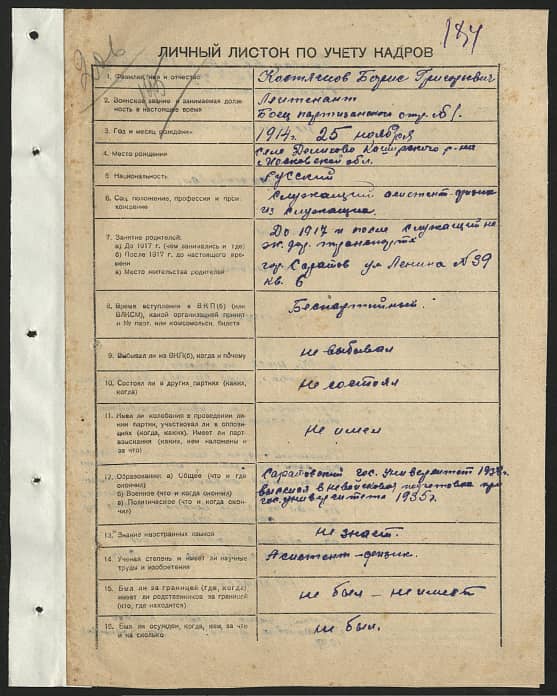 184
ЛИЧНЫЙ ЛИСТОК ПО УЧЕТУ КАДРОВ
1. Фамилия, имя и отчество
Борис Григорьевич
2. Воинское звание и занимаемая долж-
ность в настоящее время
Лейтенант
Боец партизанского отр. №1.
3. Год и месяц рождения
1914 г. 25 ноября
4. Место рождения
Село р-на
Московской обл.
5. Национальность
Русский
6. Соц. положение, профессия и прои-
хождение
Служащий асистент-физик
из служащих.
7. Занятие родителей:
а) До 1917 г. (чем занимались и где)
б) После 1917 г. до настоящего вре-
мени
в) Место жительства родителей
До 1917 и после служащий на
ж. дор. транспорте
гор. Саратов ул Ленина №39
кв. 6
8. Время вступления в ВКП(б) (или
ВЛКСМ), какой организацией принят
и № парт. или комсомольск. билета
Беспартийный.
9. Выбывал ли из ВКП(б), когда и почему
не выбывал
10. Состоял ли в других партиях (каких,
когда)
не состоял
11. Имел ли колебания в проведении ли-
нии партии, участвовал ли в оппози-
циях (когда, каких). Имеет ли парт-
взыскания (какие, кем наложены и
за что)
не имел
12. Образование: а) Общее (что и где
окончил)
б) Военное (что и когда окончил)
в) Политическое (что и когда окон-
чил)
Саратовский гос. университет
высшая вневойсковая подготовка при
гос. университете 1935 г.
13. Знание иностранных языков
не знает.
14. Ученая степень и имеет ли научные
труды и изобретения
Асистент-физик.
15. Был ли за границей (где, когда)
имеет ли родственников за границей
(кто, где находится)
не был – не имеет
16. Был ли осужден, когда, кем, за что
и на сколько
не был.